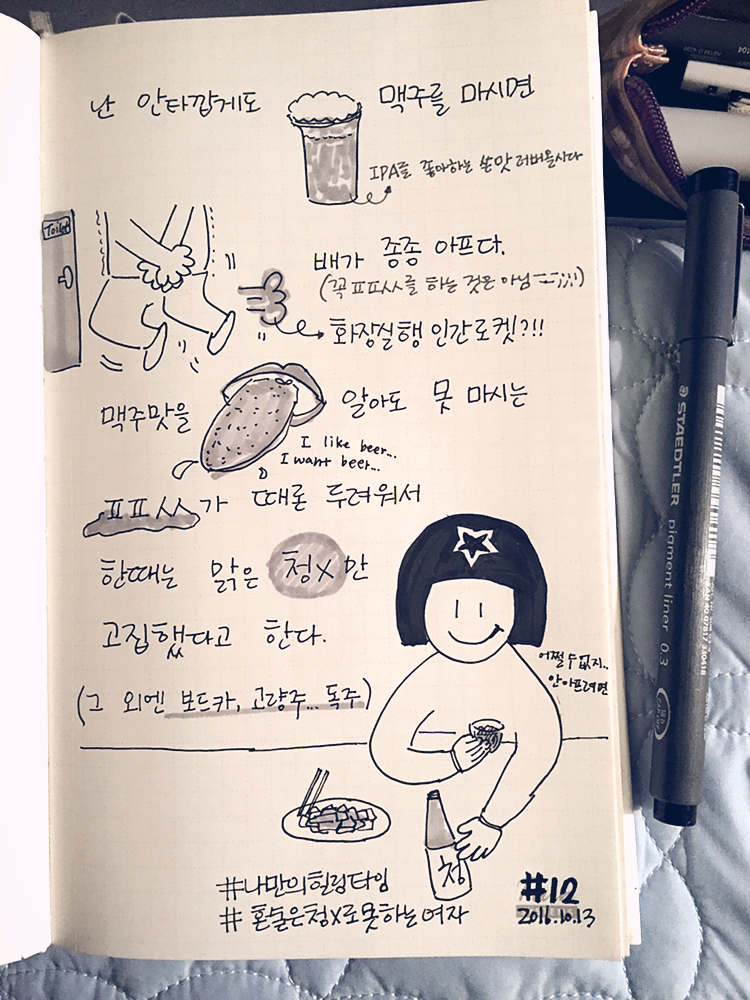 난 안타깝게도 맥주를 마시면
IPA를 좋아하는 쓴맛 러버올시다
Toilet
배가 종종 아프다.
(꼭 ㅍㅍㅅㅅ를 하는 것은 아님ㅡㅡ;;;)
화장실행 인간로켓?!!
맥주맛을 알아도 못 마시는
I like beer...
I want beer...
ㅍㅍㅅㅅ가 때론 두려워서
한때는 맑은 청X만
고집했다고 한다.
어쩔 수 없지..
안아프려면
(그 외엔 보드카, 고량주... 독주)
청
#나만의힐링타임
#혼술은청X로못하는여자
#12
2016.10.13
STAEDTLER pigment liner 0.3